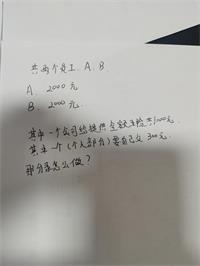 共两个员工. A. B.
A. 2000元
B. 2000元.
其中一个公司给提供全额五险共1000元.
其中一个(个人部分)要自己交300元.
那分录怎么做?